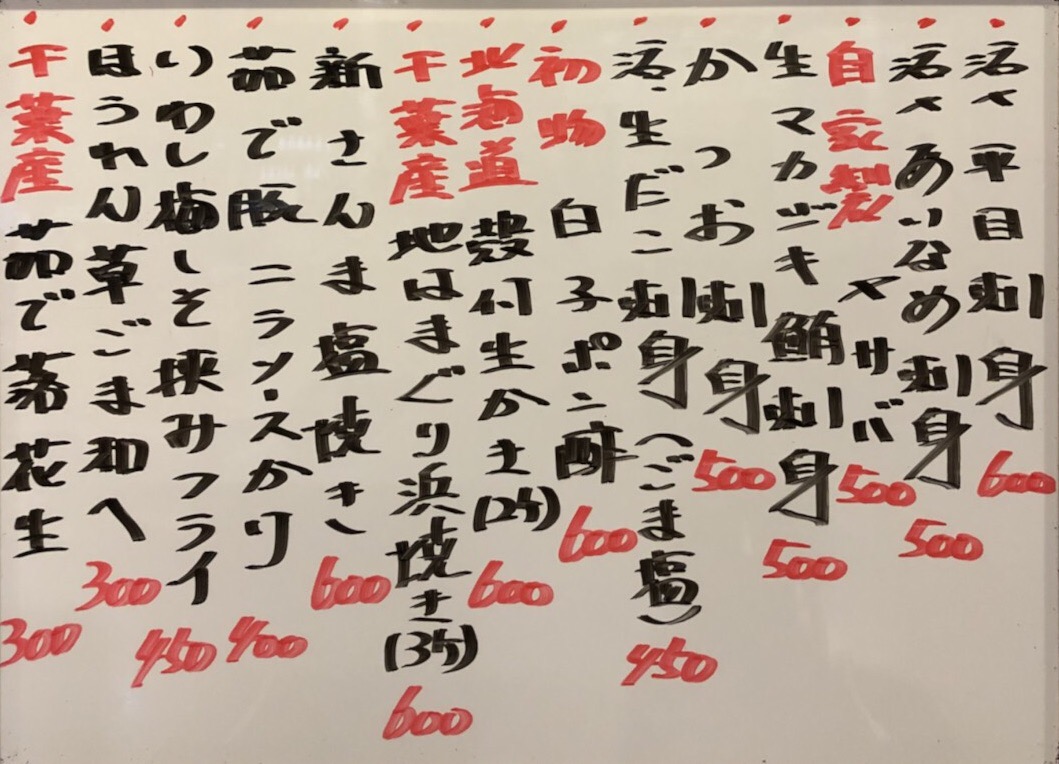 ・活〆平目刺身 600
・活〆あいなめ刺身 500
・自家製〆サバ 500
・生マカジキ鮪刺身 500
・かつお刺身 500
・活・生だこ刺身(ごま塩) 450
・初物白子ポン酢 600
・北海道殻付生かき(2ケ) 600
・千葉産地はまぐり浜焼き(3ケ) 600
・新さんま塩焼き 600
・茹で豚ニラソースかけ 400
・いわし梅しそ挟みフライ 450
・ほうれん草ごま和へ 300
・千葉産茹で落花生 300